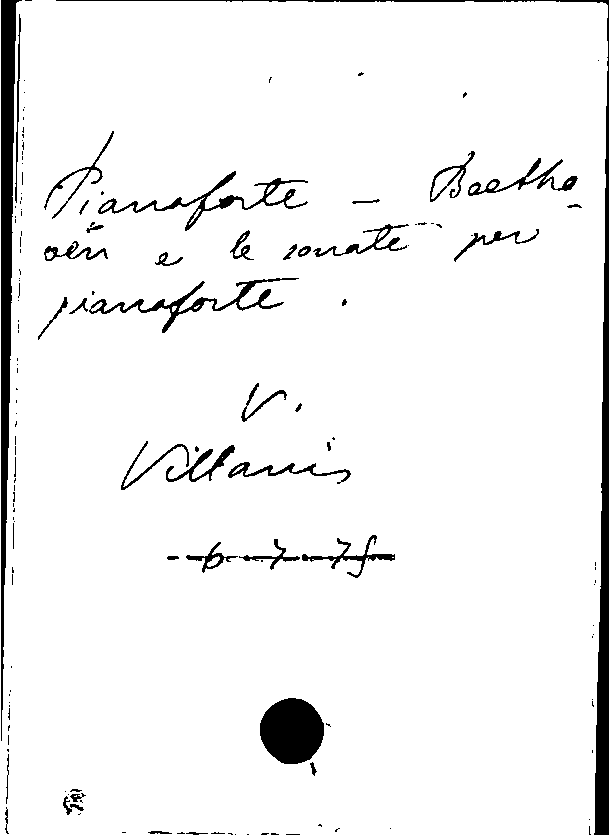 Pianoforte - Beetho-
ven e le sonate per
pianoforte.
V.
Villanis